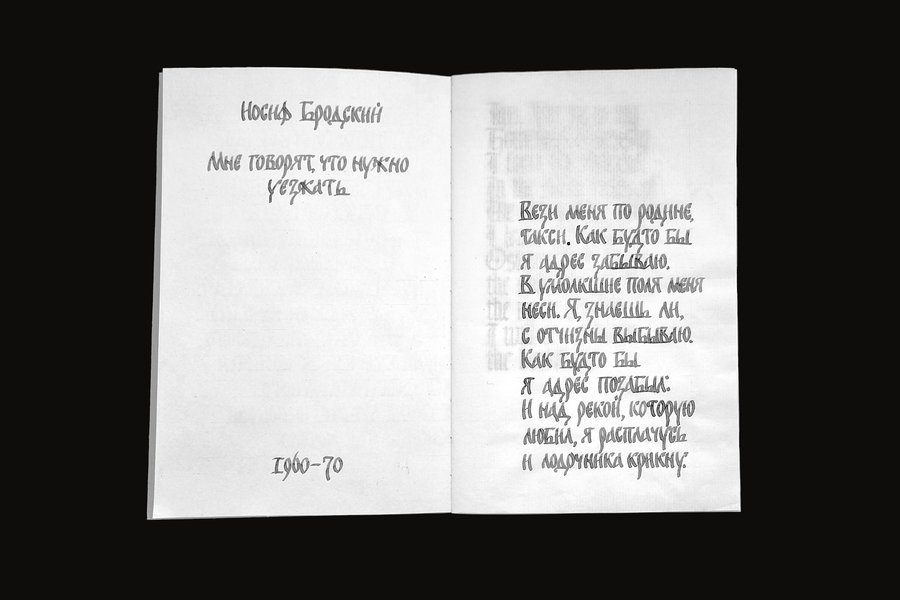 Иосиф Бродский
Мне говорят, что нужно
уезжать
1960-70
Вези меня по родине,
такси. Как будто бы
я адрес забываю.
В умолкшие поля меня
неси. Я, знаешь ли,
с отчизны выбываю.
Как будто бы
я адрес позабыл:
И над рекой, которую
любил, я расплачусь
и лодочника крикну.